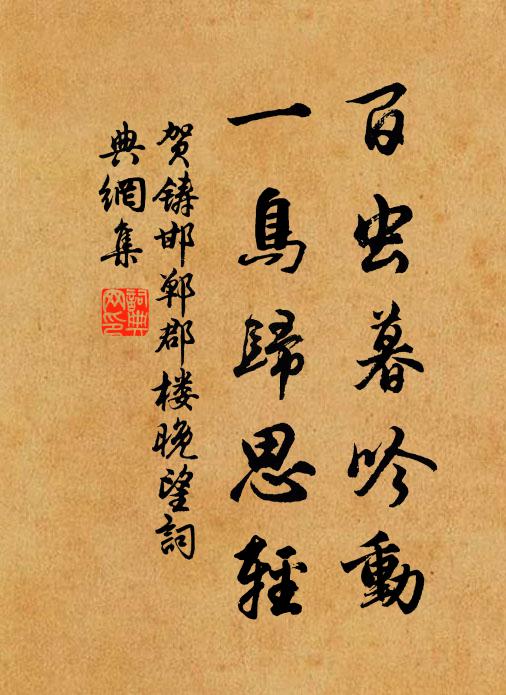 百虫暮吟動
一鳥歸思輕
賀鑄邯鄲郡樓晚望詞
典網集
詞典
网印